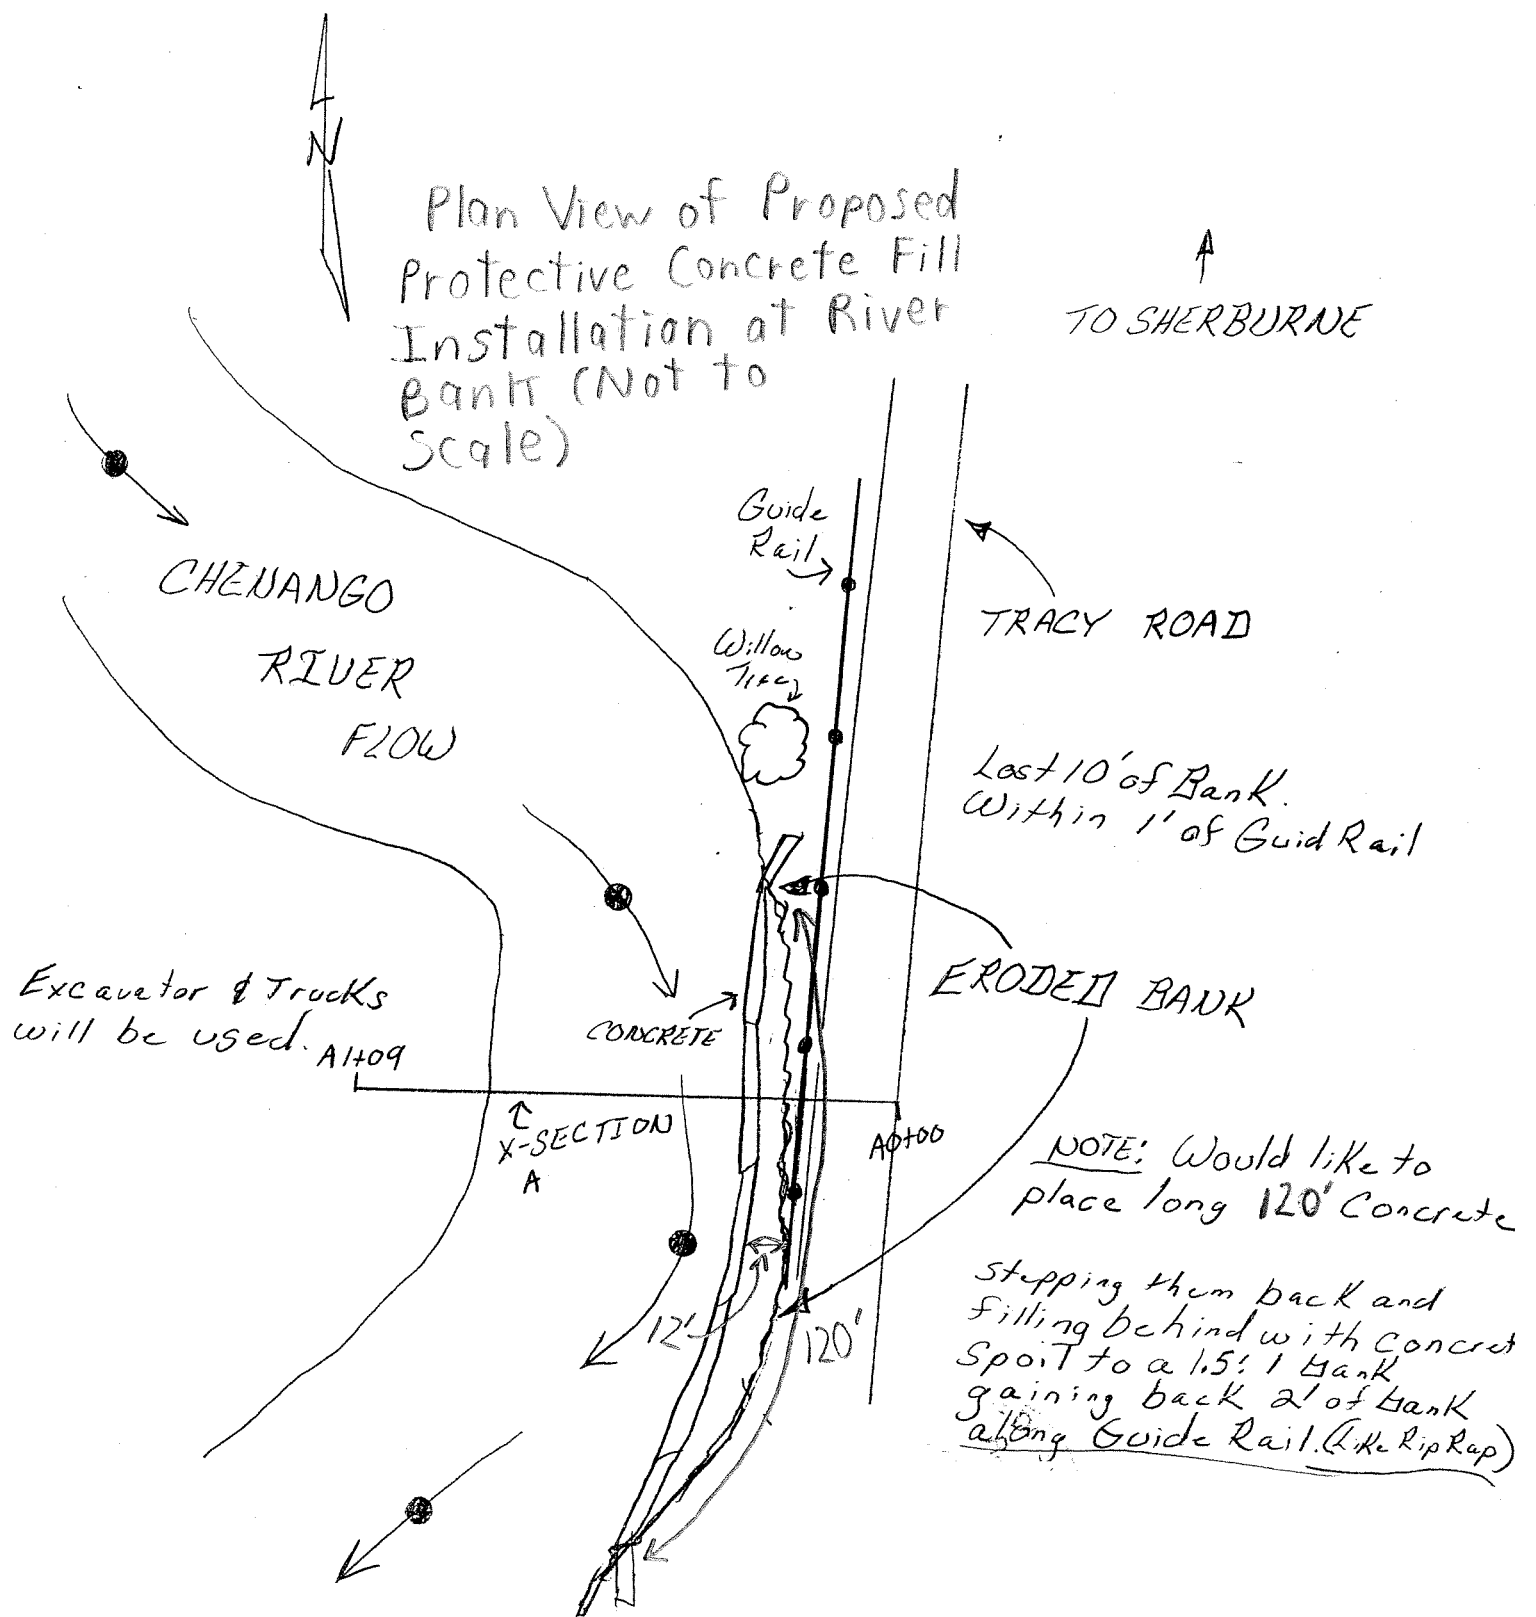 N
Plan View of Proposed
Protective Concrete Fill
Installation at River
Bank (Not to
Scale)
TO SHERBURNE
Guide
Rail
CHENANGO
RIVER
FLOW
TRACY ROAD
Willow
Tree
Lost 10' of Bank.
Within 1' of Guid Rail
ERODED BANK
Excavator & Trucks
will be used.
CONCRETE
A1+09
X-SECTION
A
A0+00
NOTE: Would like to
place long 120' Concrete
stepping them back and
filling behind with concret
Spoil to a 1.5:1 Bank
gaining back 2' of bank
along Guide Rail. (Like Rip Rap)
12'
120'